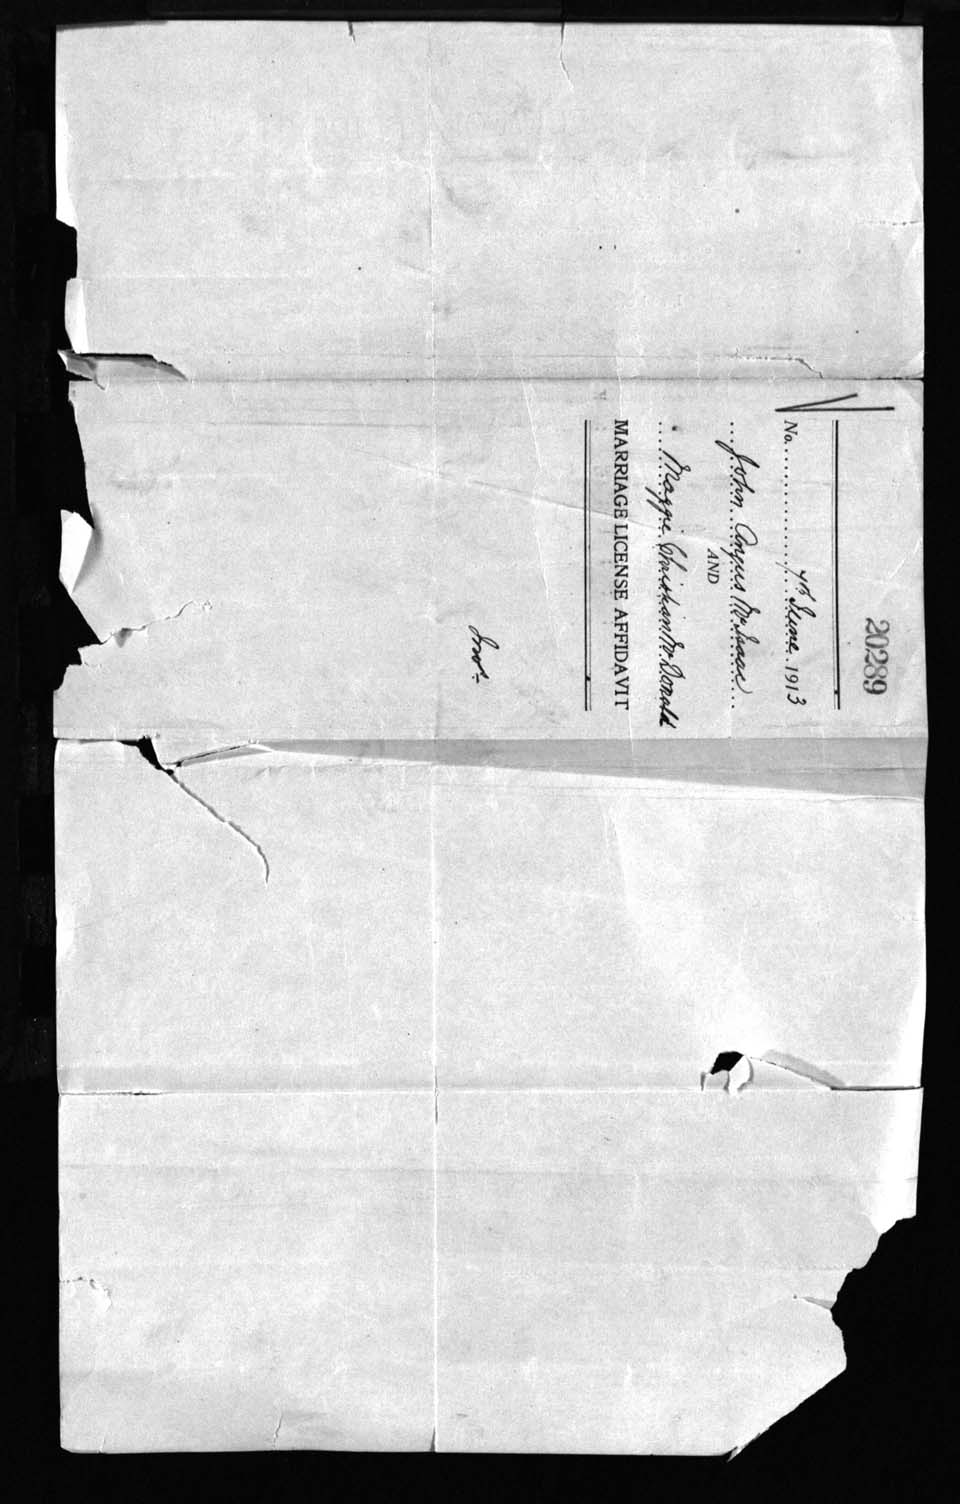 20289
No. 4th June 1913
John Angus McIsaac
AND
Maggie Christian McDonald
MARRIAGE LICENSE AFFIDAVIT